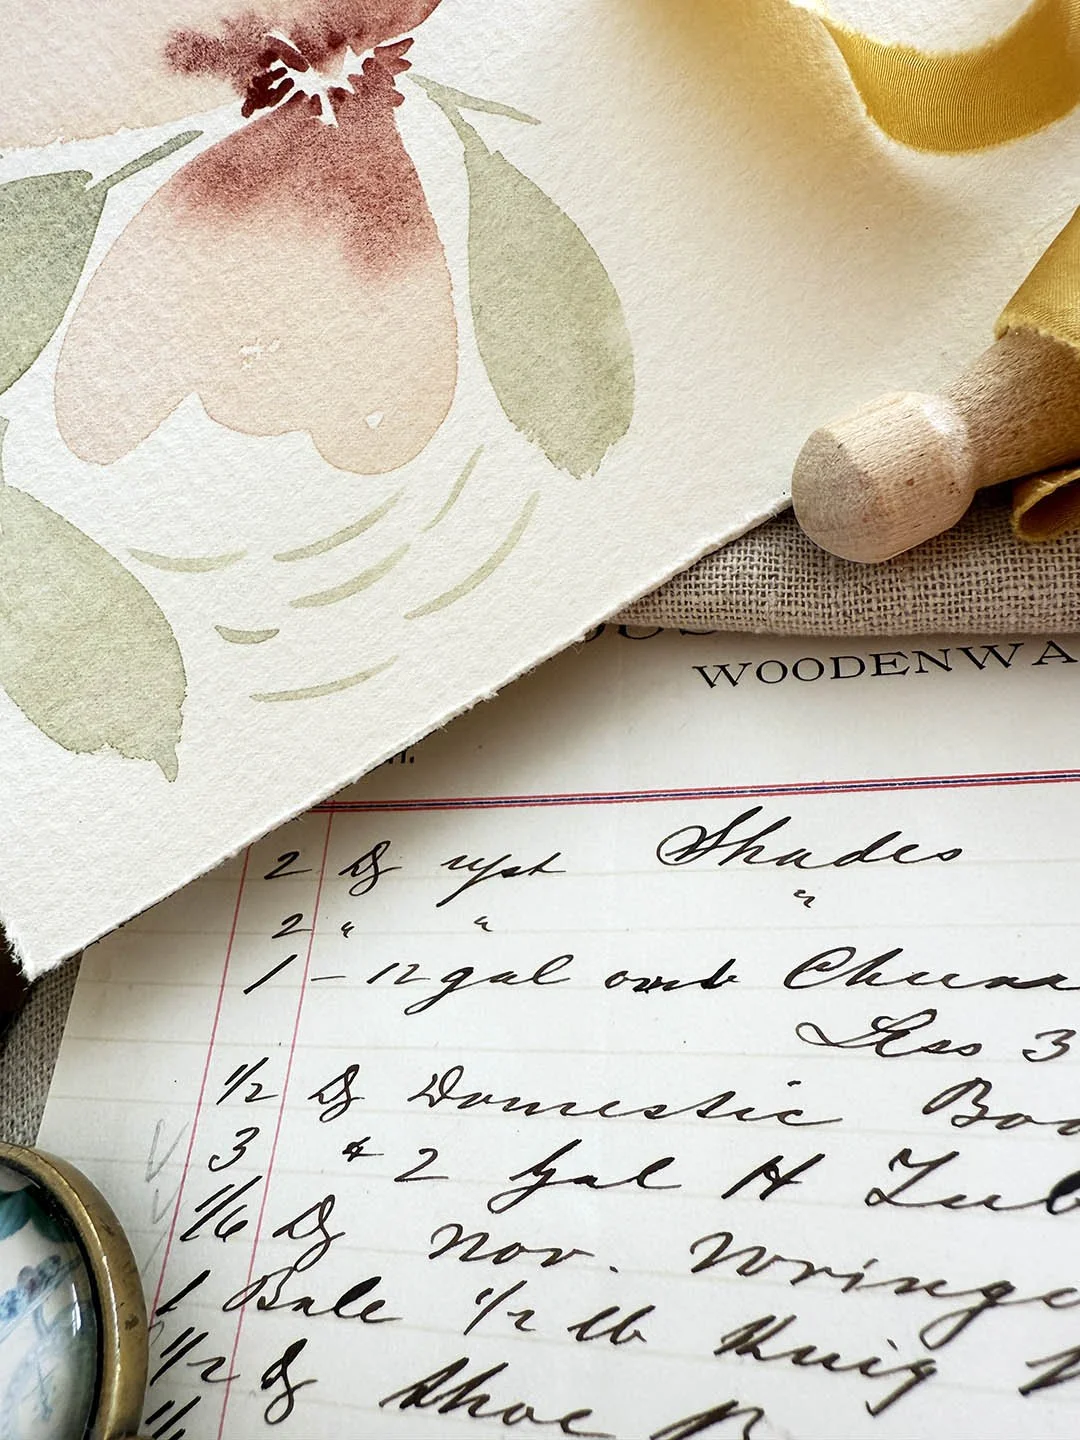 WOODENWA
2 Dz Shades
2 " " "
1 - 12 gal
Less 3
1/2 Dz Domestic Boo
3 # 2 Gal H Tub
1/6 Dz Nov. Wringe
1 Bale 1/2 lb
1/2 Dz Shoe B